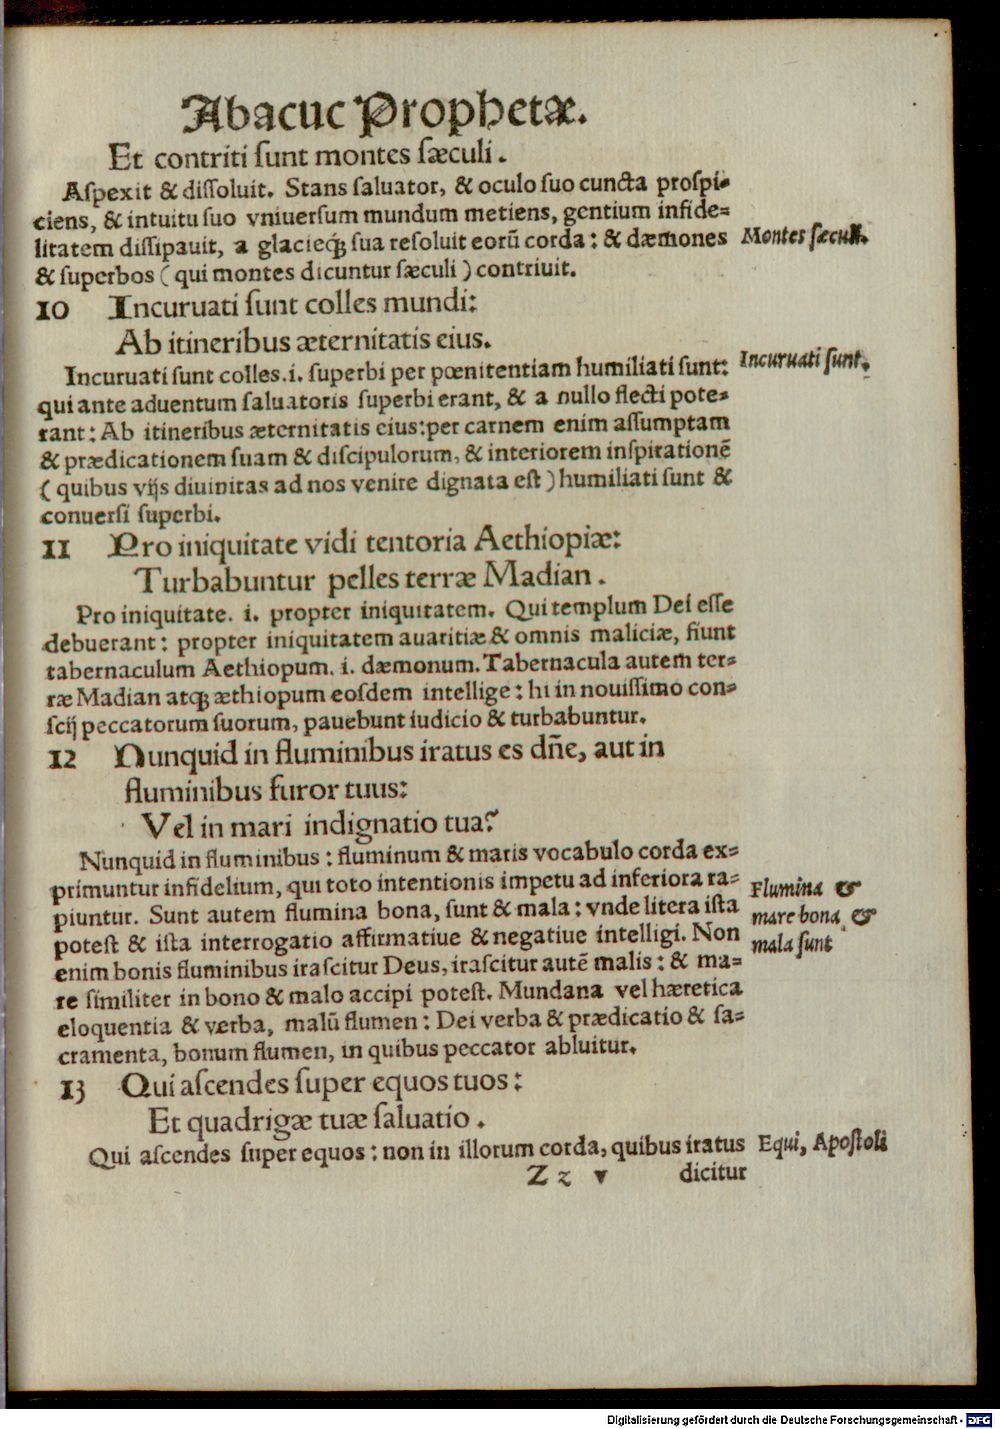 Abacuc Prophetæ.
Et contriti ſunt montes ſæculi.
Aſpexit & diſſoluit. Stans ſaluator, & oculo ſuo cuncta proſpi-
ciens, & intuitu ſuo vniuerſum mundum metiens, gentium infide-
litatem diſſipauit, a glacieq́ ſua reſoluit eorū corda: & dæmones
Montes ſæculi.
& ſuperbos (qui montes dicuntur ſæculi) contriuit.
10 Incuruati ſunt colles mundi:
Ab itineribus æternitatis eius.
Incuruati ſunt colles.i. ſuperbi per pœnitentiam humiliati ſunt:
Incuruati ſunt.
qui ante aduentum ſaluatoris ſuperbi erant, & a nullo flecti pote-
rant: Ab itineribus æternitatis eius: per carnem enim aſſumptam
& prædicationem ſuam & diſcipulorum, & interiorem inſpirationē
(quibus vijs diuinitas ad nos venire dignata eſt) humiliati ſunt &
conuerſi ſuperbi.
11 Pro iniquitate vidi tentoria Aethiopiæ:
Turbabuntur pelles terræ Madian.
Pro iniquitate. i. propter iniquitatem. Qui templum Dei eſſe
debuerant: propter iniquitatem auaritiæ & omnis maliciæ, fiunt
tabernaculum Aethiopum. i. dæmonum. Tabernacula autem ter-
ræ Madian atq́ æthiopum eoſdem intellige: hi in nouiſſimo con-
ſcij peccatorum ſuorum, pauebunt iudicio & turbabuntur.
12 Nunquid in fluminibus iratus es dñe, aut in
fluminibus furor tuus:
Vel in mari indignatio tua?
Nunquid in fluminibus: fluminum & maris vocabulo corda ex-
primuntur infidelium, qui toto intentionis impetu ad inferiora ra-
Flumina &
piuntur. Sunt autem flumina bona, ſunt & mala: vnde litera iſta
mare bona &
poteſt & iſta interrogatio affirmatiue & negatiue intelligi. Non
mala ſunt
enim bonis fluminibus iraſcitur Deus, iraſcitur autē malis: & ma-
re ſimiliter in bono & malo accipi poteſt. Mundana vel hæretica
eloquentia & verba, malū flumen: Dei verba & prædicatio & ſa-
cramenta, bonum flumen, in quibus peccator abluitur.
13 Qui aſcendes ſuper equos tuos:
Et quadrigæ tuæ ſaluatio.
Qui aſcendes ſuper equos: non in illorum corda, quibus iratus
Equi, Apoſtoli
Z z v dicitur
Digitalisierung gefördert durch die Deutsche Forschungsgemeinschaft - DFG